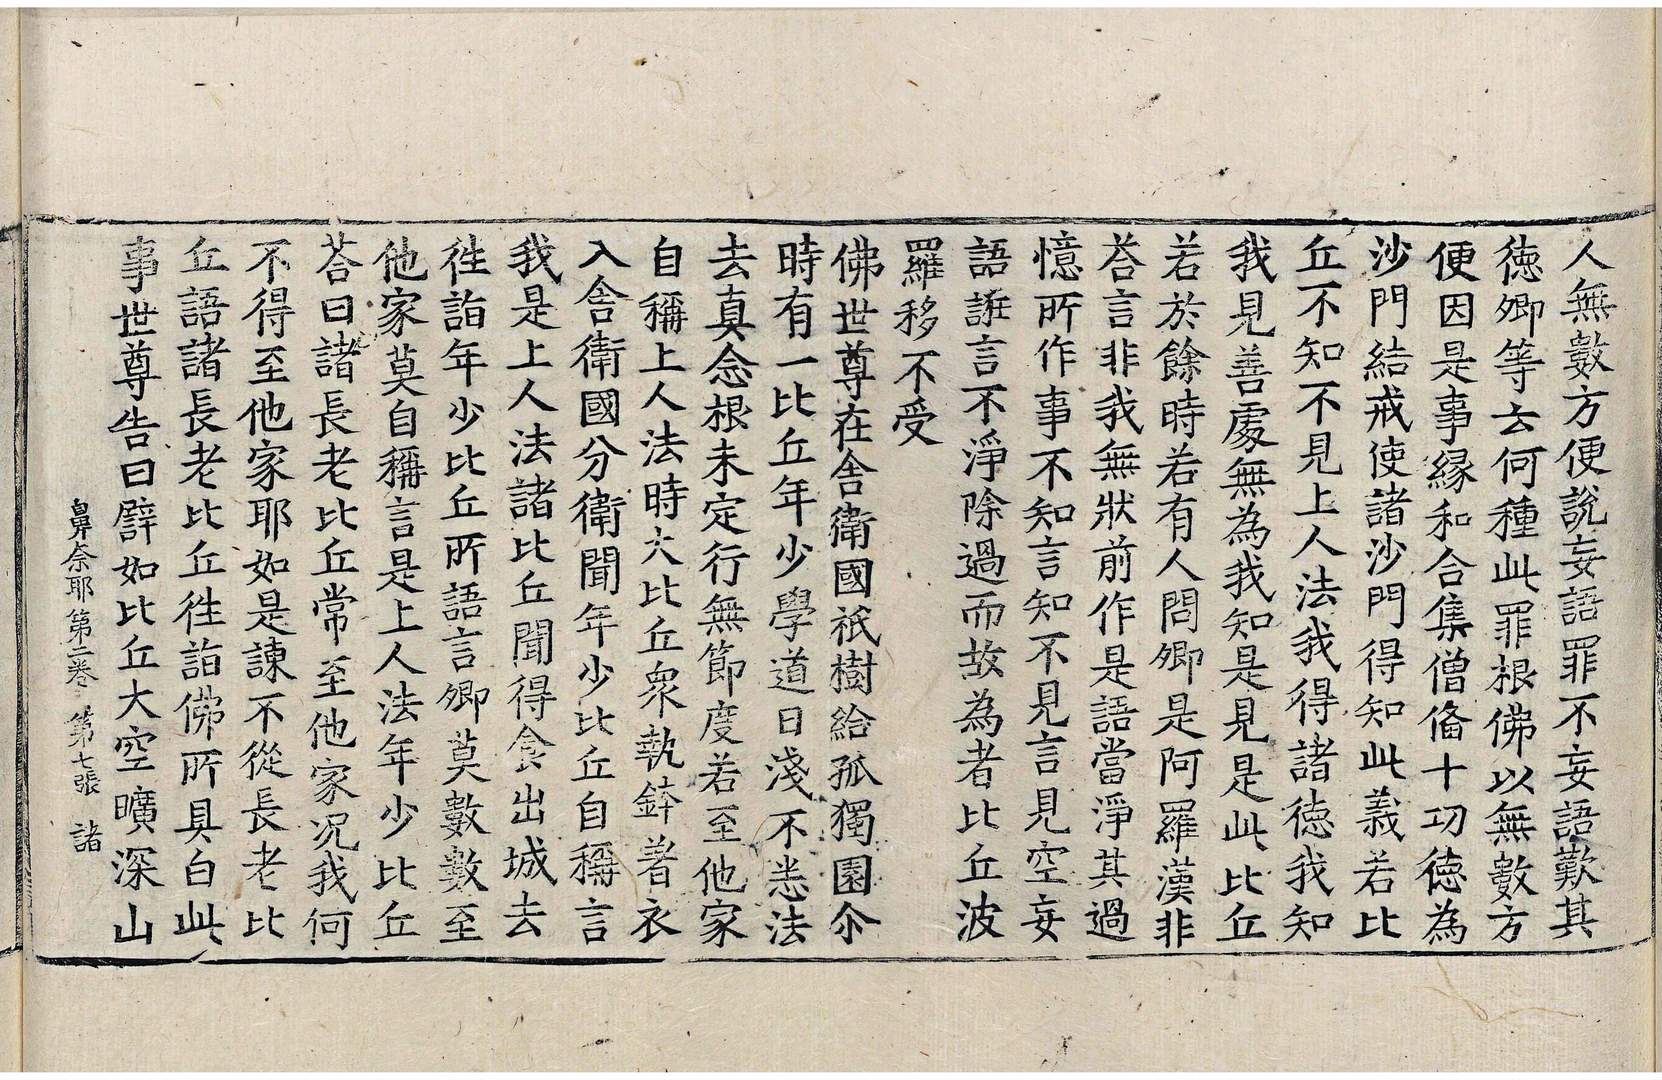 人無數方便說妄語罪不妄語歎其
德卿等云何種此罪根佛以無數方
便因是事緣和合集僧俻十功德為
沙門結戒使諸沙門得知此義若比
丘不知不見上人法我得諸德我知
我見善處無為我知是見是此比丘
若於餘時若有人問卿是阿羅漢非
荅言非我無狀前作是語當淨其過
憶所作事不知言知不見言見空妄
語誑言不淨除過而故為者比丘波
羅移不受
佛世尊在舎衛國祇樹給孤獨園尒
時有一比丘年少學道日淺不恙法
去真念根未定行無節度若至他家
自稱上人法時大比丘衆執鉢著衣
入舎衛國分衛聞年少比丘自稱言
我是上人法諸比丘聞得食出城去
徃詣年少比丘所語言卿莫數數至
他家莫自稱言是上人法年少比丘
荅曰諸長老比丘常至他家况我何
不得至他家耶如是諫不從長老比
丘語諸長老比丘徃詣佛所具白此
事世尊告曰譬如比丘大空曠深山
鼻奈耶第二卷 第七張 諸